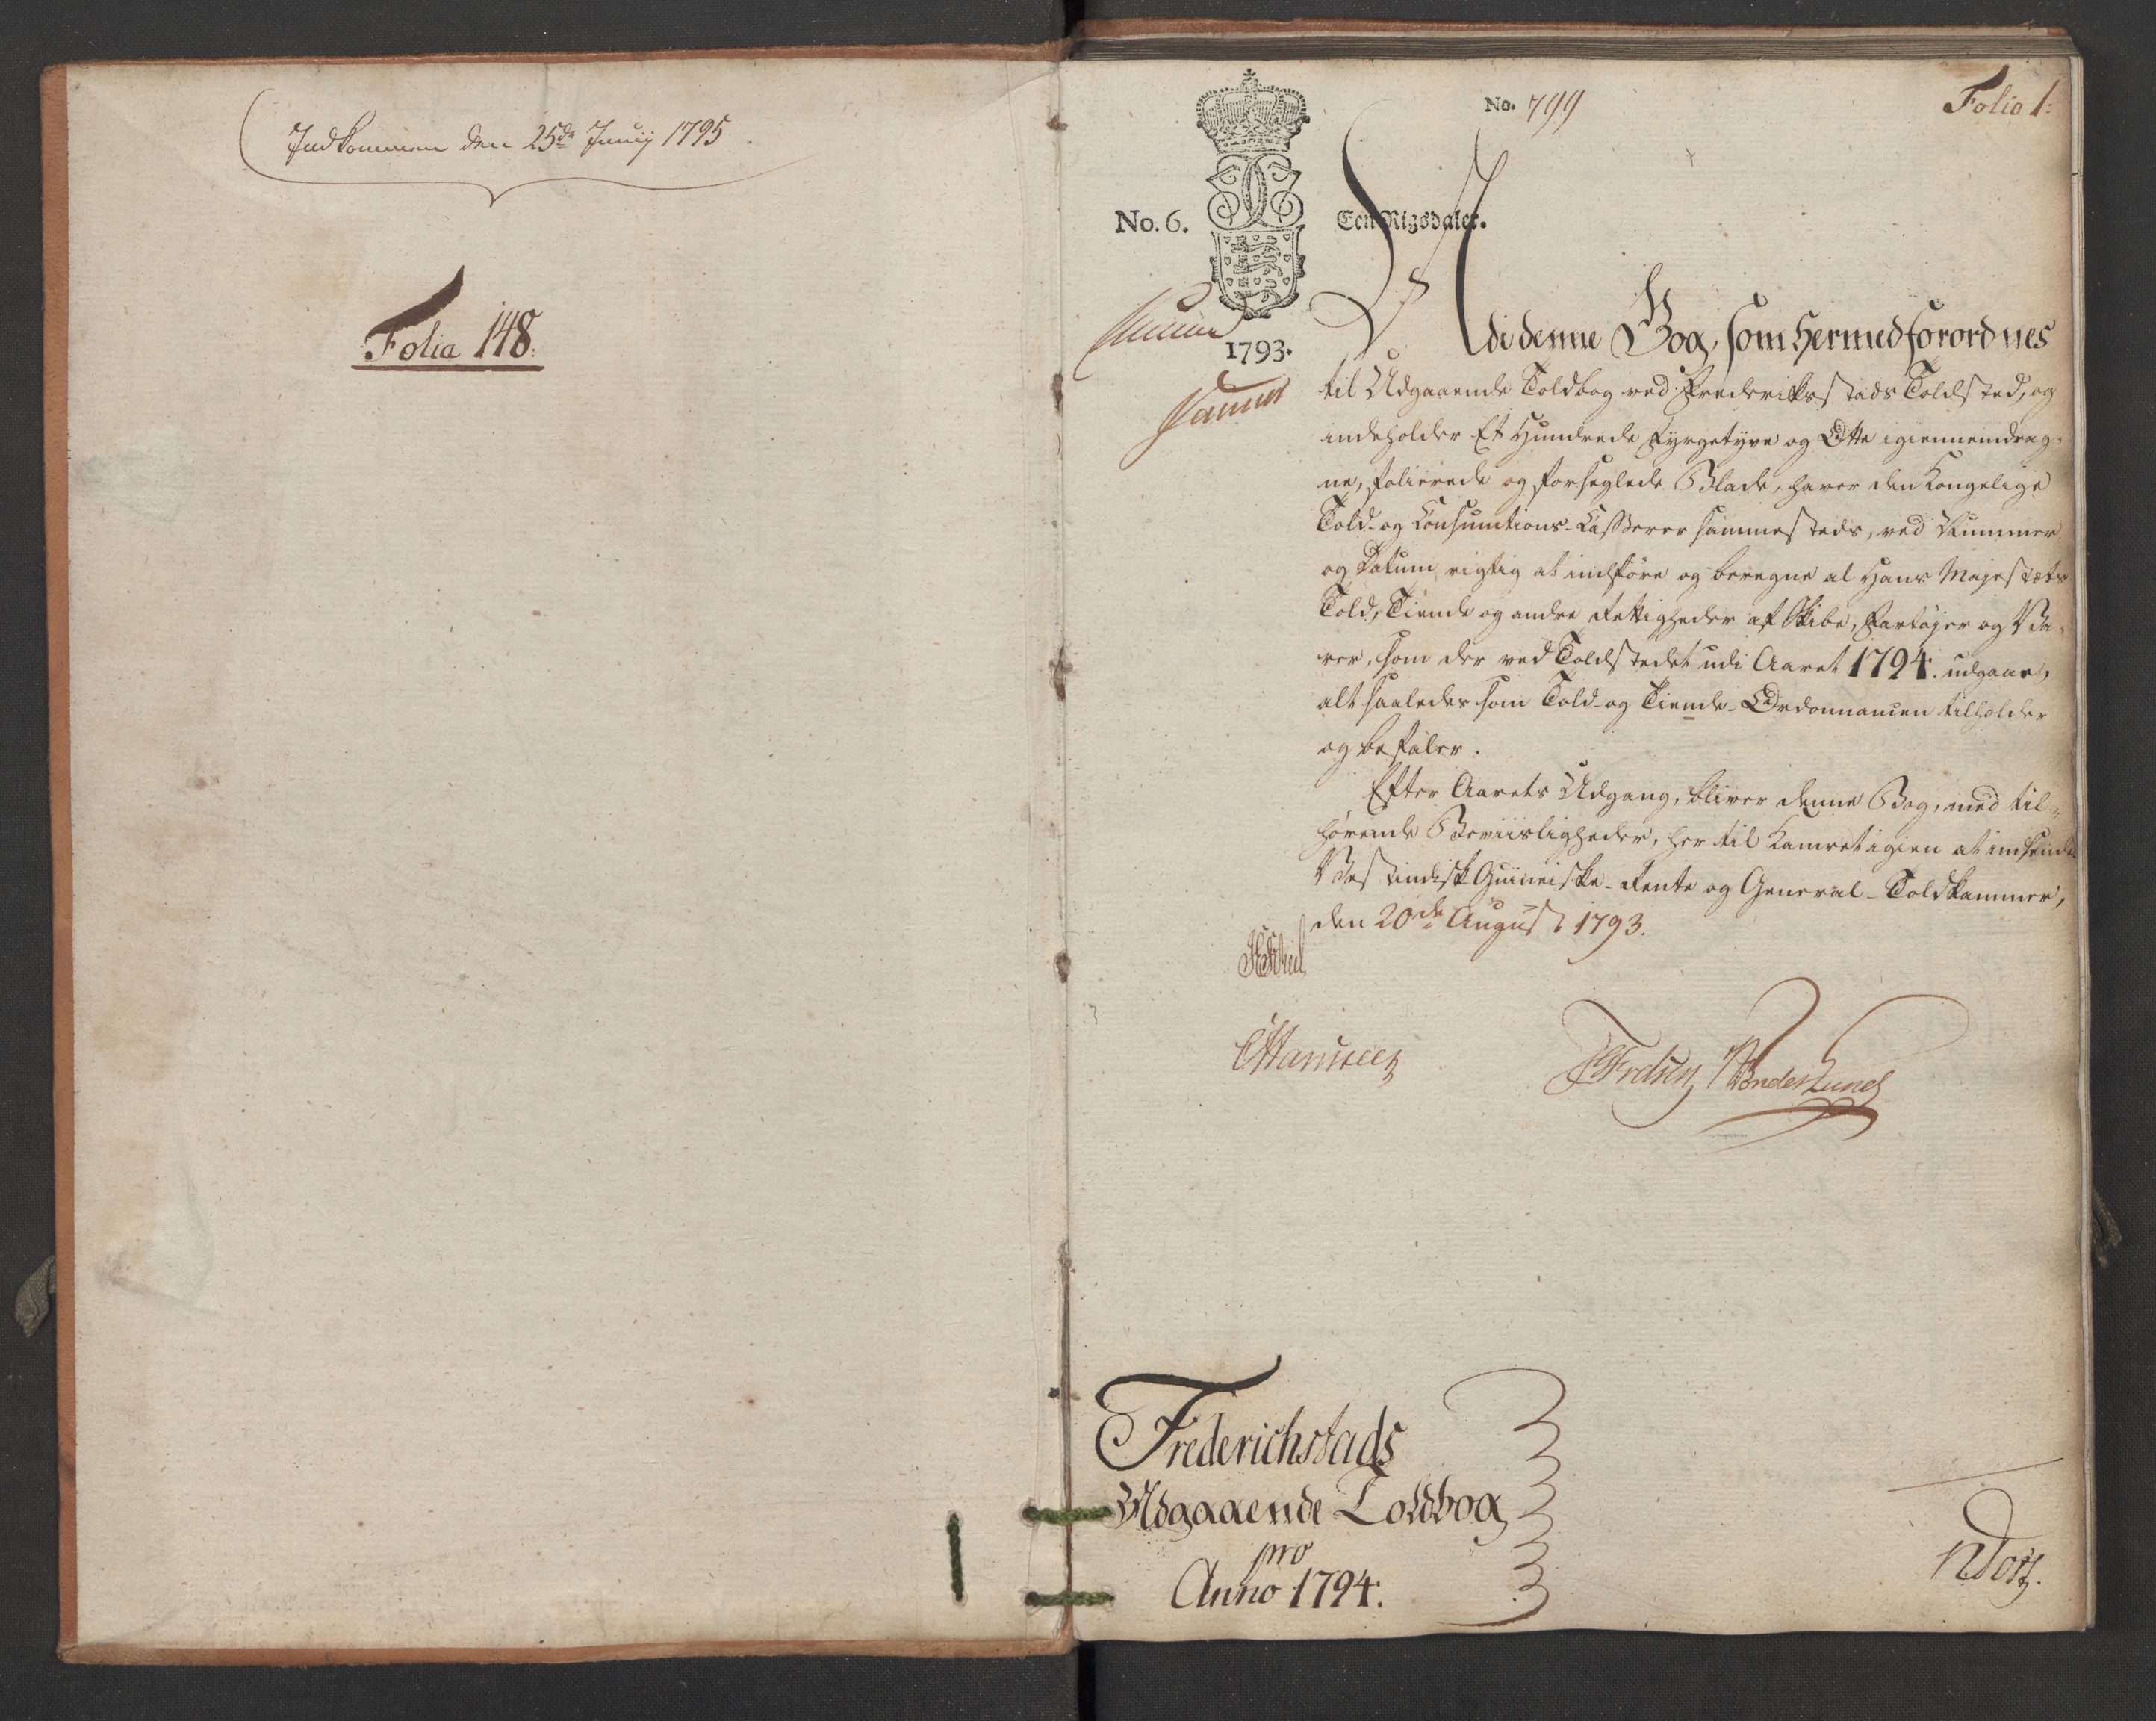 Indkommen den 25de Junij 1795
Folia 148.
No. 799
Folio 1:
No. 6.
Een Rigsdaler.
1793.
Udi denne Bog, som hermed forordnes
til Udgaaende Toldbog ved Frederikstads Toldsted, og
indeholder Et Hundrede Fyrgetyve og Otte igiennemdrag-
ne, folierede og forseglede Blade, haver den Kongelige
Told- og Consumtions-Casserer sammesteds, ved Nummer
og Datum, rigtig at indføre og beregne al Hans Majestæts
Told, Tiende og andre Rettigheder af Skibe, Fartøjer og Va-
rer, som der ved Toldstedet udi Aaret 1794. udgaar,
alt saaledes som Told- og Tiende-Ordonnancen tilholder
og befaler.
Efter Aarets Udgang, bliver denne Bog, med til-
hørende Beviisligheder, her til Kamret igien at indsende.
Vestindisk-Guineiske- Rente og General-Toldkammer,
den 20de August 1793.
Frederichstads
Udgaaende Toldbog
pro
Anno 1794.